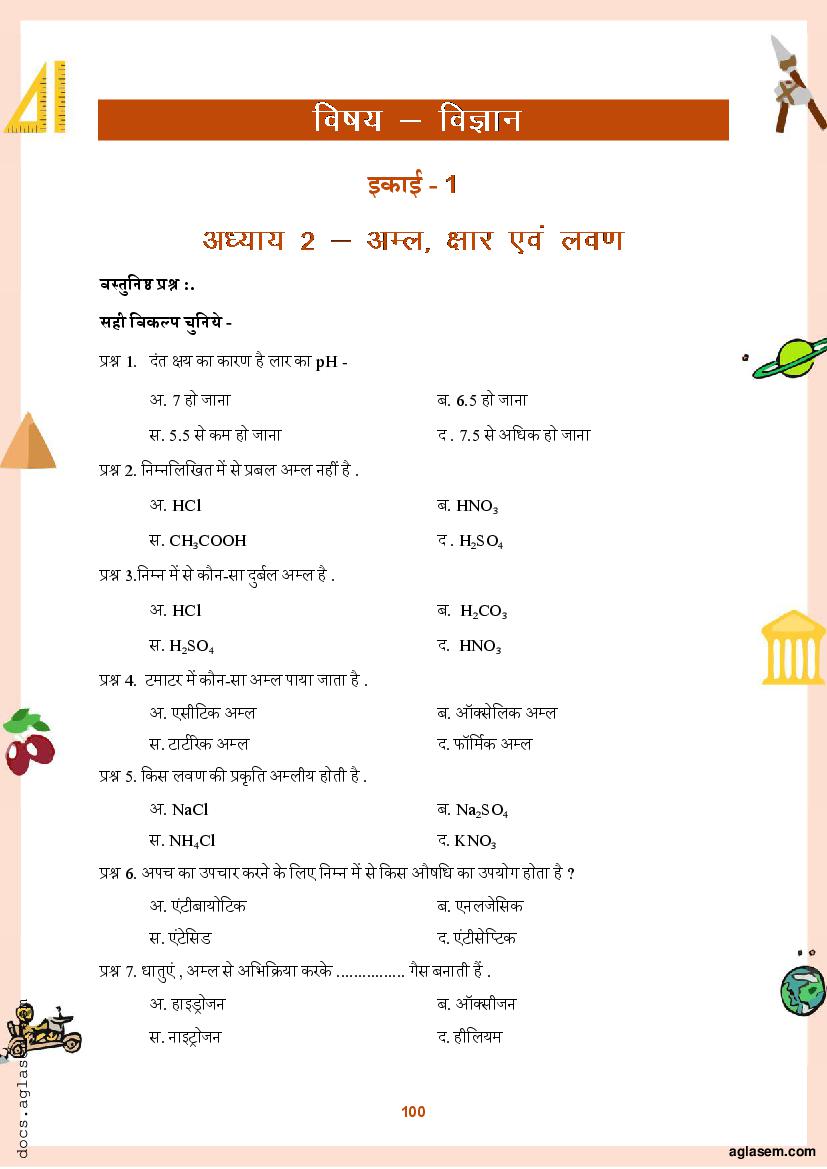 विषय – विज्ञान
इकाई - 1
अध्याय 2 – अम्ल, क्षार एवं लवण
वस्तुनिष्ठ प्रश्न :.
सही विकल्प चुनिये -
प्रश्न 1. दंत क्षय का कारण है लार का pH -
अ. 7 हो जाना ब. 6.5 हो जाना
स. 5.5 से कम हो जाना द . 7.5 से अधिक हो जाना
प्रश्न 2. निम्नलिखित में से प्रबल अम्ल नहीं है .
अ. HCl ब. HNO₃
स. CH₃COOH द . H₂SO₄
प्रश्न 3.निम्न में से कौन-सा दुर्बल अम्ल है .
अ. HCl ब. H₂CO₃
स. H₂SO₄ द. HNO₃
प्रश्न 4. टमाटर में कौन-सा अम्ल पाया जाता है .
अ. एसीटिक अम्ल ब. ऑक्सेलिक अम्ल
स. टार्टरिक अम्ल द. फॉर्मिक अम्ल
प्रश्न 5. किस लवण की प्रकृति अम्लीय होती है .
अ. NaCl ब. Na₂SO₄
स. NH₄Cl द. KNO₃
प्रश्न 6. अपच का उपचार करने के लिए निम्न में से किस औषधि का उपयोग होता है ?
अ. एंटीबायोटिक ब. एनलजेसिक
स. एंटेसिड द. एंटीसेप्टिक
प्रश्न 7. धातुएं , अम्ल से अभिक्रिया करके ................ गैस बनाती हैं .
अ. हाइड्रोजन ब. ऑक्सीजन
स. नाइट्रोजन द. हीलियम
100
aglasem.com